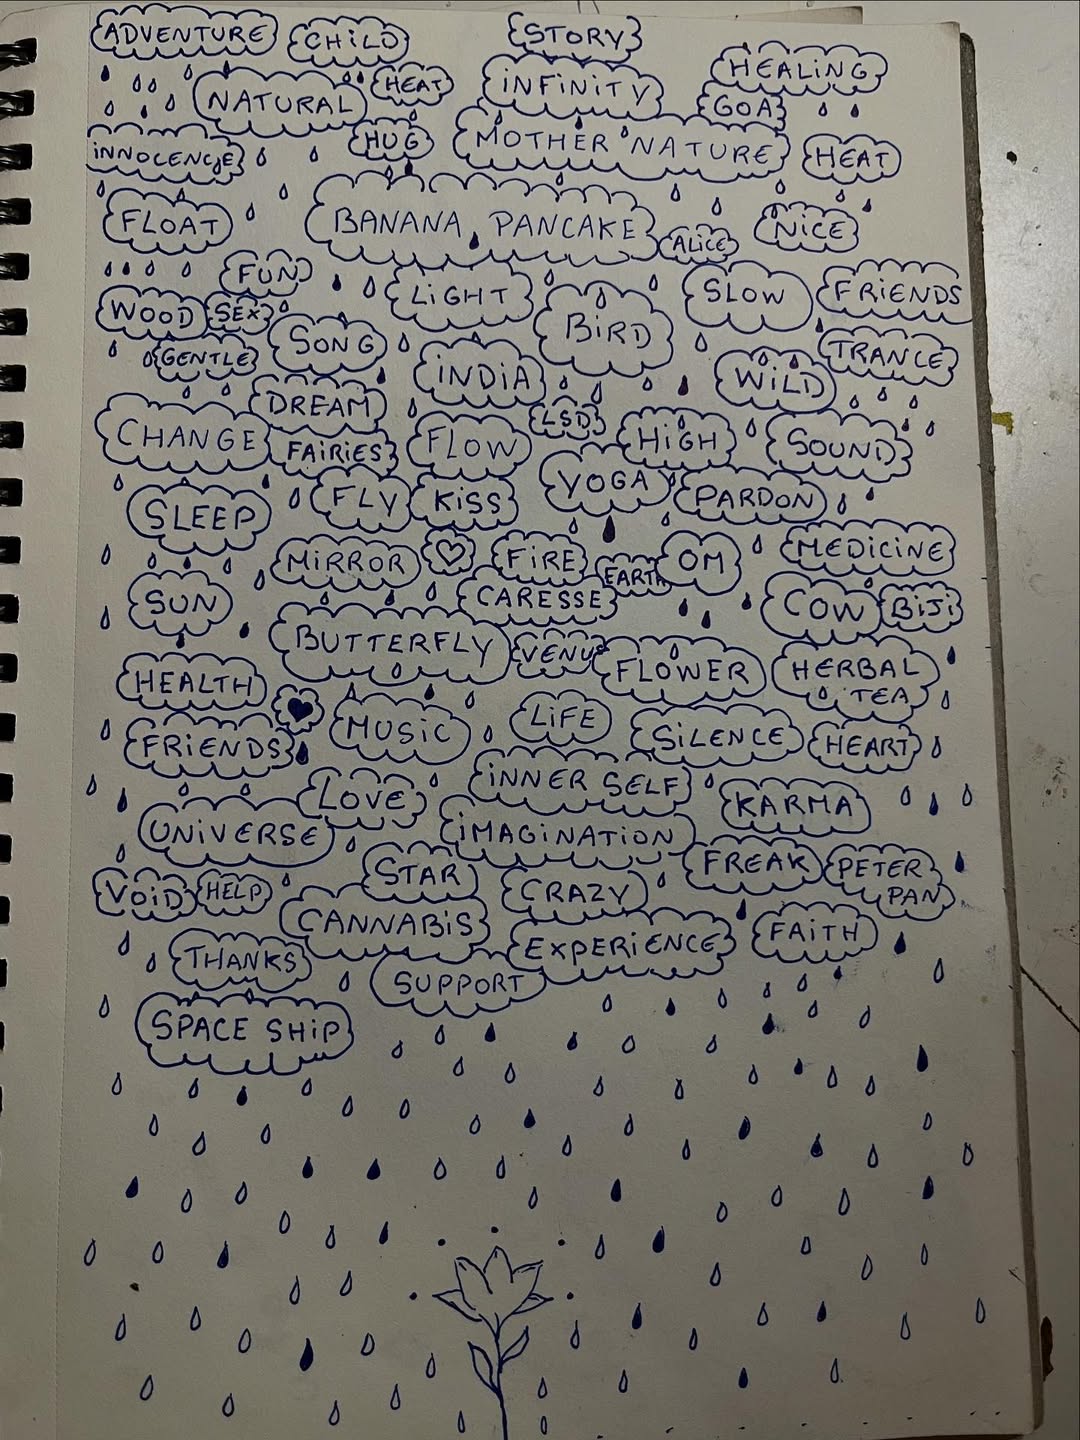 ADVENTURE
CHILD
STORY
HEALING
NATURAL
HEAT
INFINITY
GOA
INNOCENCE
HUG
MOTHER NATURE
HEAT
FLOAT
BANANA PANCAKE
ALICE
NICE
FUN
LIGHT
SLOW
FRIENDS
WOOD
SEX
SONG
BIRD
TRANCE
GENTLE
INDIA
WILD
DREAM
LSD
CHANGE
FAIRIES
FLOW
HIGH
SOUND
SLEEP
FLY
KISS
YOGA
PARDON
MIRROR
FIRE
EARTH
OM
MEDICINE
SUN
CARESSE
COW
BIJI
BUTTERFLY
VENUS
FLOWER
HERBAL
TEA
HEALTH
MUSIC
LIFE
SILENCE
HEART
FRIENDS
INNER SELF
LOVE
KARMA
UNIVERSE
IMAGINATION
STAR
FREAK
PETER
PAN
VOID
HELP
CRAZY
CANNABIS
EXPERIENCE
FAITH
THANKS
SUPPORT
SPACE SHIP